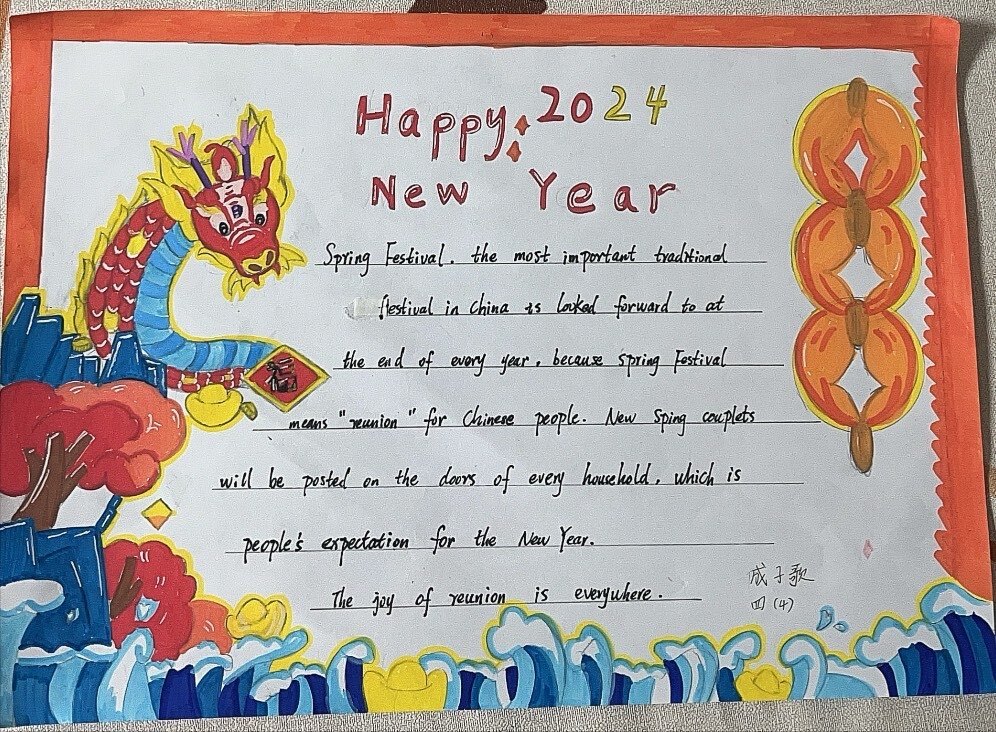 Happy 2024
New Year
Spring Festival. the most important traditional
festival in China is looked forward to at
the end of every year. because Spring Festival
福
means "reunion" for Chinese people. New Sping couplets
will be posted on the doors of every household. which is
people's expectation for the New Year.
The joy of reunion is everywhere.
成子歌
四(4)